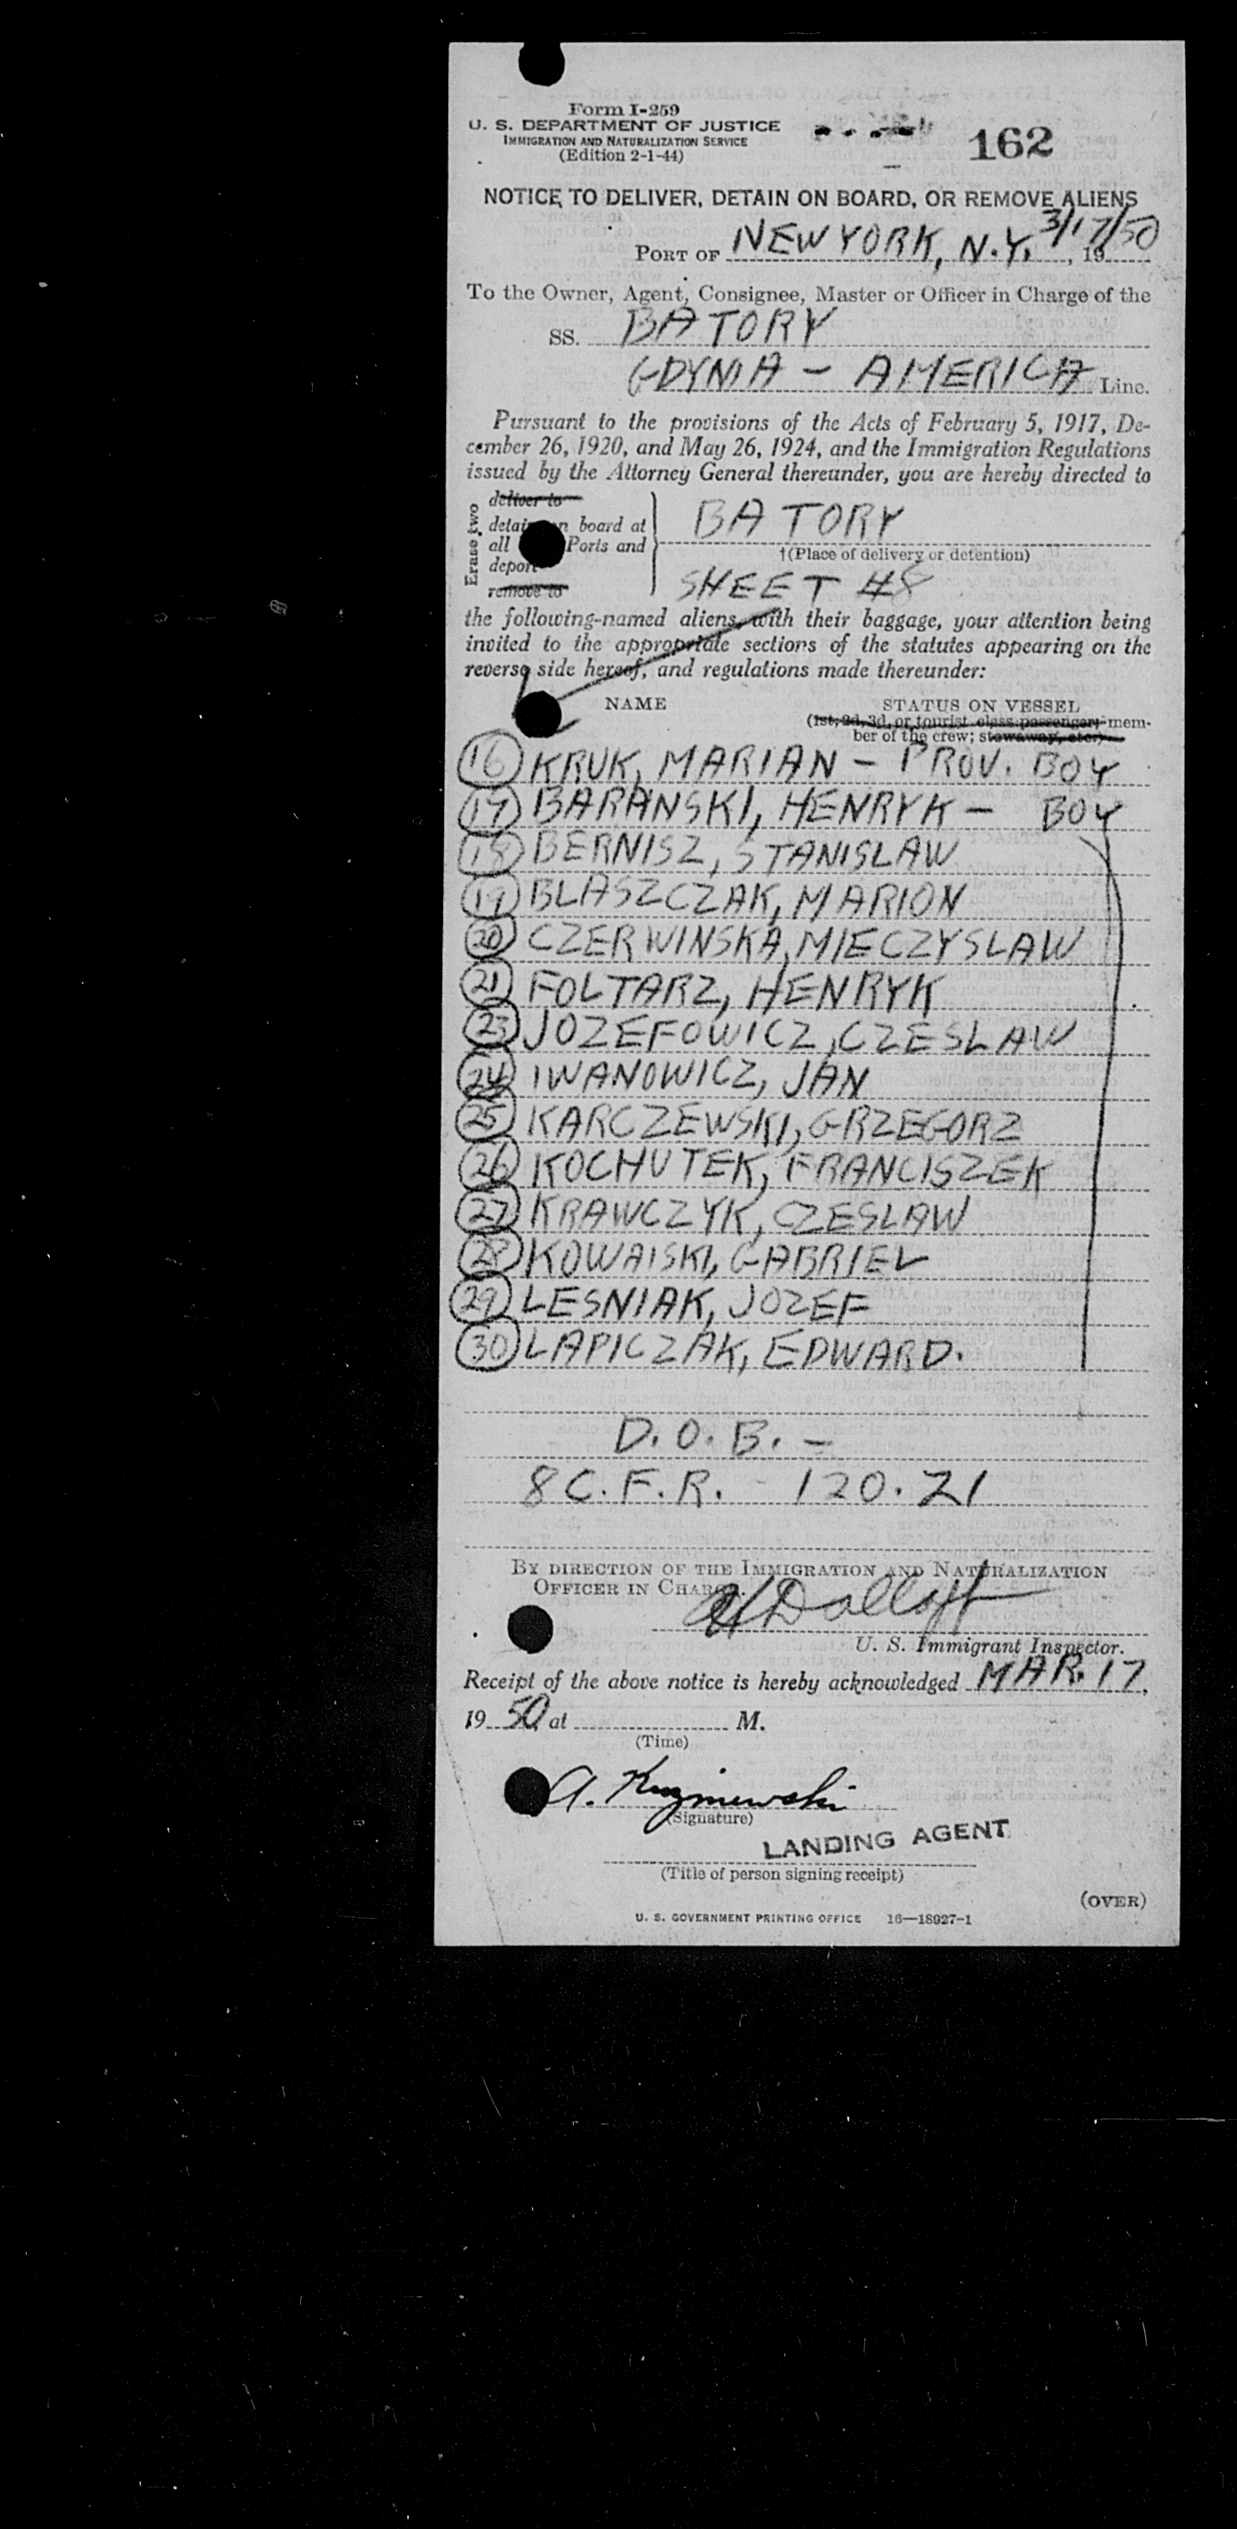 Form I-259
U. S. DEPARTMENT OF JUSTICE
IMMIGRATION AND NATURALIZATION SERVICE
(Edition 2-1-44)
162
NOTICE TO DELIVER, DETAIN ON BOARD, OR REMOVE ALIENS
PORT OF NEW YORK, N.Y. 3/17/50, 19
To the Owner, Agent, Consignee, Master or Officer in Charge of the
SS. BATORY
GDYNIA - AMERICA Line.
Pursuant to the provisions of the Acts of February 5, 1917, De-
cember 26, 1920, and May 26, 1924, and the Immigration Regulations
issued by the Attorney General thereunder, you are hereby directed to
Erase two
deliver to
detain on board at
all Ports and
deport
remove to
BATORY
†(Place of delivery or detention)
SHEET #8
the following-named aliens, with their baggage, your attention being
invited to the appropriate sections of the statutes appearing on the
reverse side hereof, and regulations made thereunder:
NAME STATUS ON VESSEL
(1st, 2d, 3d, or tourist class passenger; mem-
ber of the crew; stowaway, etc.)
16 KRUK, MARIAN - PROV. BOY
17 BARANSKI, HENRYK - BOY
18 BERNISZ, STANISLAW
19 BLASZCZAK, MARION
20 CZERWINSKA, MIECZYSLAW
21 FOLTARZ, HENRYK
23 JOZEFOWICZ, CZESLAW
24 IWANOWICZ, JAN
25 KARCZEWSKI, GRZEGORZ
26 KOCHUTEK, FRANCISZEK
27 KRAWCZYK, CZESLAW
28 KOWALSKI, GABRIEL
29 LESNIAK, JOZEF
30 LAPICZAK, EDWARD.
D.O.B. -
8 C.F.R. - 120.21
BY DIRECTION OF THE IMMIGRATION AND NATURALIZATION
OFFICER IN CHARGE.
U. S. Immigrant Inspector.
Receipt of the above notice is hereby acknowledged MAR. 17,
19 50, at M.
(Time)
A. Kuzniewski
(Signature)
LANDING AGENT
(Title of person signing receipt)
(OVER)
U. S. GOVERNMENT PRINTING OFFICE 16—18927-1